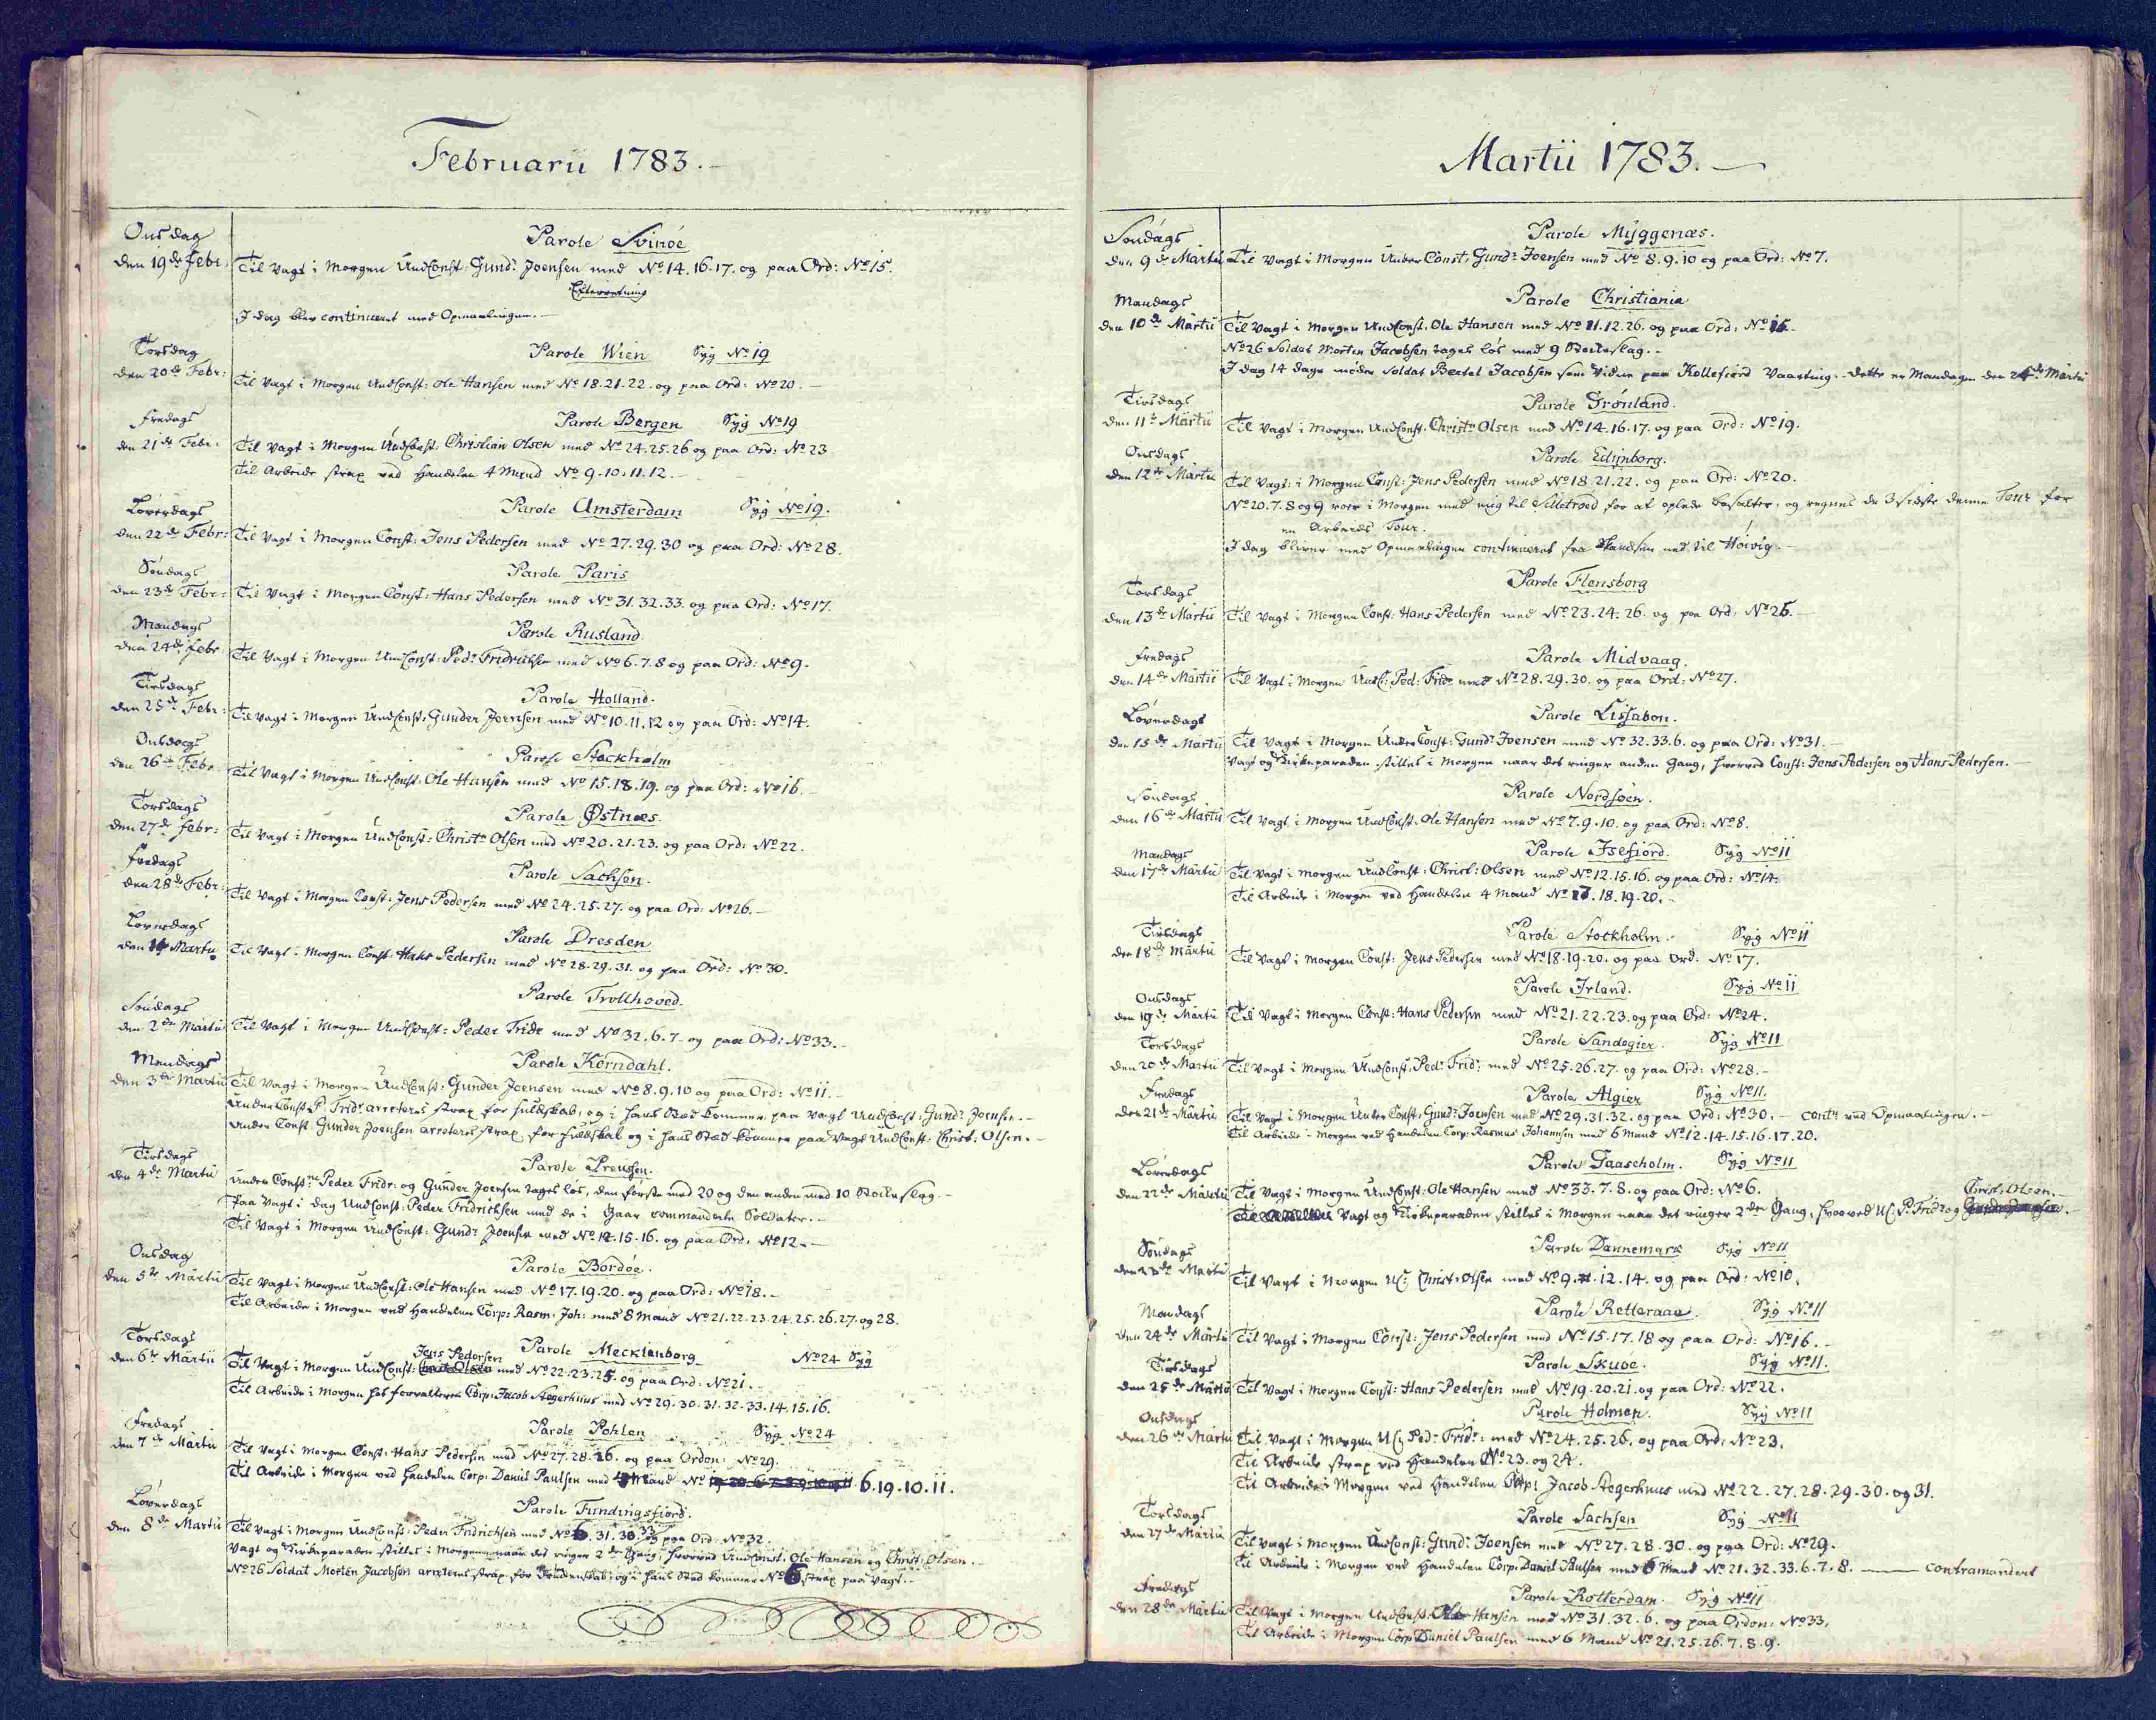 Februarii 1783.
Onsdag
den 19de Febr:
Parole Svinöe
Til Vagt i Morgen UndConst: Gundr Joensen med No 14. 16. 17. og paa Ord: No 15.
Efterretning
I dag blev continueret med Opmaalingen.
Torsdag
den 20de Febr:
Parole Wien Syg No 19
Til Vagt i Morgen UndConst: Ole Hansen med No 18. 21. 22. og paa Ord: No 20.
Fredags
den 21de Febr:
Parole Bergen Syg No 19
Til Vagt i Morgen UndConst: Christian Olsen med No 24. 25. 26 og paa Ord: No 23
Til Arbeide strax ved Handelen 4 Mand No 9. 10. 11. 12.
Löverdags
den 22de Febr:
Parole Amsterdam Syg No 19.
Til Vagt i Morgen Const: Jens Pedersen med No 27. 29. 30 og paa Ord: No 28.
Söndags
den 23de Febr:
Parole Paris
Til Vagt i Morgen Const: Hans Pedersen med No 31. 32. 33. og paa Ord: No 17.
Mandags
den 24de Febr
Parole Rusland.
Til Vagt i Morgen UndConst: Pedr Fridrichsen med No 6. 7. 8 og paa Ord: No 9.
Tirsdags
den 25de Febr:
Parole Holland.
Til Vagt i Morgen UndConst: Gunder Joensen med No 10. 11. 12 og paa Ord: No 14.
Onsdags
den 26de Febr
Parole Stockholm
Til Vagt i Morgen UndConst: Ole Hansen med No 15. 18. 19. og paa Ord: No 16.
Torsdags
den 27de Febr:
Parole Østnæs.
Til Vagt i Morgen UndConst: Christn Olsen med No 20. 21. 23. og paa Ord: No 22.
Fredags
den 28de Febr:
Parole Sachsen.
Til Vagt i Morgen Const: Jens Pedersen med No 24. 25. 27. og paa Ord: No 26.
Löverdags
den 1te Martii
Parole Dresden
Til Vagt i Morgen Const: Hans Pedersen med No 28. 29. 31. og paa Ord: No 30.
Söndags
den 2den Martii
Parole Trollhoved.
Til Vagt i Morgen UndConst: Peder Fridr med No 32. 6. 7. og paa Ord: No 33.
Mandags
den 3die Martii
Parole Korndahl.
Til Vagt i Morgen UndConst: Gunder Joensen med No 8. 9. 10 og paa Ord: No 11.
UnderConst P. Fridr arreteres strax for Fuldskab, og i hans Sted kommer paa Vagt UndConst: Gundr Joensen.
Under Const. Gunder Joensen arreteres strax for Fuldskab og i hans Sted kommer paa Vagt UndConst: Christ: Olsen.
Tirsdags
den 4de Martii
Parole Preussen.
Under Const. Peder Fridr: og Gunder Joensen tages lös, den förste med 20 og den anden med 10 Stokeslag.
Paa Vagt i dag UndConst: Peder Fridrichsen med de i Gaar commanderte Soldater.
Til Vagt i Morgen UndConst: Gundr Joensen med No 14. 15. 16. og paa Ord: No 12.
Onsdag
den 5te Martii
Parole Bordöe.
Til Vagt i Morgen UndConst: Ole Hansen med No 17. 19. 20. og paa Ord: No 18.
Til Arbeide i Morgen ved Handelen Corp: Rasm: Joh: med 8 Mand No 21. 22. 23. 24. 25. 26. 27. og 28.
Torsdags
den 6te Martii
Parole Mecklenborg No 24 Syg
Jens Pedersen
Til Vagt i Morgen UndConst: med No 22. 23. 25. og paa Ord: No 21.
Til Arbeide i Morgen hos Forvalteren Corp: Jacob Aegerhuus med No 29. 30. 31. 32. 33. 14. 15. 16.
Fredags
den 7de Martii
Parole Pohlen Syg No 24
Til Vagt i Morgen Const: Hans Pedersen med No 27. 28. 26. og paa Ordon: No 29.
Til Arbeide i Morgen ved Handelen Corp: Daniel Paulsen med 4 Mand No 6. 19. 10. 11.
Löverdags
den 8de Martii
Parole Fundingsfiord.
Til Vagt i Morgen UndConst: Peder Fridrichsen med No 31. 30. 33 og paa Ord: No 32.
Vagt og Kirkeparaden stilles i Morgen naar det ringer 2den Gang, hvorved UndConst: Ole Hansen og Christ: Olsen.
No 26 Soldat Morten Jacobsen arreteres strax for og i hans Sted kommer No 6 strax paa Vagt.
Martii 1783.
Söndags
den 9de Martii
Parole Myggenæs.
Til Vagt i Morgen Under Const: Gundr Joensen med No 8. 9. 10 og paa Ord: No 7.
Mandags
den 10de Martii
Parole Christiania
Til Vagt i Morgen UndConst. Ole Hansen med No 11. 12. 26. og paa Ord: No 15.
No 26 Soldat Morten Jacobsen tages lös med 9 Stokeslag.
I dag 14 dage möder Soldat Bertel Jacobsen som Vidne paa Kollefiord Vaarting. Dette er Mandagen den 24de Martii
Tirsdags
den 11te Martii
Parole Grönland.
Til Vagt i Morgen UndConst. Christn Olsen med No 14. 16. 17. og paa Ord: No 19.
Onsdags
den 12te Martii
Parole Edijnborg.
Til Vagt: i Morgen Const: Jens Pedersen med No 18. 21. 22. og paa Ord: No 20.
No 20. 7. 8 og 9 roer i Morgen med mig til for at oplede Basalter, og regnes de 3 sidste denne Tour for
en Arbeids Tour.
I dag bliver med Opmaalingen continueret fra ned til Hoivig.
Torsdags
den 13de Martii
Parole Flensborg
Til Vagt i Morgen Const: Hans Pedersen med No 23. 24. 26. og paa Ord: No 25.
Fredags
den 14de Martii
Parole Midvaag.
Til Vagt i Morgen UndC: Ped: Fridr med No 28. 29. 30. og paa Ord: No 27.
Löverdags
den 15de Martii
Parole Lissabon.
Til Vagt i Morgen UnderConst: Gundr Joensen med No 32. 33. 6. og paa Ord: No 31.
Vagt og Kirkeparaden stilles i Morgen naar det ringer anden Gang, hvorved Const: Jens Pedersen og Hans Pedersen.
Söndags
den 16de Martii
Parole Nordsöen.
Til Vagt i Morgen UndConst. Ole Hansen med No 7. 9. 10. og paa Ord: No 8.
Mandags
den 17de Martii
Parole Isefiord. Syg No 11
Til Vagt i Morgen UndConst: Christ: Olsen med No 12. 15. 16. og paa Ord: No 14.
Til Arbeide i Morgen ved Handelen 4 Mand No 17. 18. 19. 20.
Tirsdags
den 18de Martii
Parole Stockholm. Syg No 11
Til Vagt i Morgen Const: Jens Pedersen med No 18. 19. 20. og paa Ord: No 17.
Onsdags
den 19de Martii
Parole Irland. Syg No 11
Til Vagt i Morgen Const: Hans Pedersen med No 21. 22. 23. og paa Ord: No 24.
Torsdags
den 20de Martii
Parole Sandegier. Syg No 11
Til Vagt i Morgen UndConst. Pedr Fridr: med No 25. 26. 27. og paa Ord: No 28.
Fredags
den 21de Martii
Parole Algier Syg No 11.
Til Vagt i Morgen Under Const: Gundr Joensen med No 29. 31. 32. og paa Ord: No 30. – contr ved Opmaalingen.
Til Arbeide i Morgen ved Handelen Corp: Rasmus Johannsen med 6 Mand No 12. 14. 15. 16. 17. 20.
Löverdags
den 22de Martii
Parole Gaaseholm. Syg No 11
Til Vagt i Morgen UndConst: Ole Hansen med No 33. 7. 8. og paa Ord: No 6.
Christ: Olsen.
Vagt og Kirkeparaden stilles i Morgen naar det ringer 2den Gang, hvorved UC: P. Fridr og
Söndags
den 23de Martii
Parole Dannemark Syg No 11
Til Vagt i Morgen UC: Christ: Olsen med No 9. 12. 14. og paa Ord: No 10.
Mandags
den 24de Martii
Parole Retteraae. Syg No 11
Til Vagt i Morgen Const: Jens Pedersen med No 15. 17. 18 og paa Ord: No 16.
Tirsdags
den 25de Martii
Parole Skuöe. Syg No 11.
Til Vagt i Morgen Const: Hans Pedersen med No 19. 20. 21. og paa Ord: No 22.
Onsdags
den 26de Martii
Parole Holmen. Syg No 11
Til Vagt i Morgen UC: Pedr Fridr: med No 24. 25. 26. og paa Ord: No 23.
Til Arbeide strax ved Handelen No 23. og 24.
Til Arbeide i Morgen ved Handelen Corp: Jacob Aegerhuus med No 22. 27. 28. 29. 30. og 31.
Torsdags
den 27de Martii
Parole Sachsen Syg No 11
Til Vagt i Morgen UndConst: Gundr Joensen med No 27. 28. 30. og paa Ord: No 29.
Til Arbeide i Morgen ved Handelen Corp. Daniel Paulsen med 6 Mand No 21. 32. 33. 6. 7. 8. — contramandert
Fredags
den 28de Martii
Parole Rotterdam. Syg No 11
Til Vagt i Morgen UndConst: Ole Hansen med No 31. 32. 6. og paa Ordon: No 33.
Til Arbeide i Morgen Corp Daniel Paulsen med 6 Mand No 21. 25. 26. 7. 8. 9.